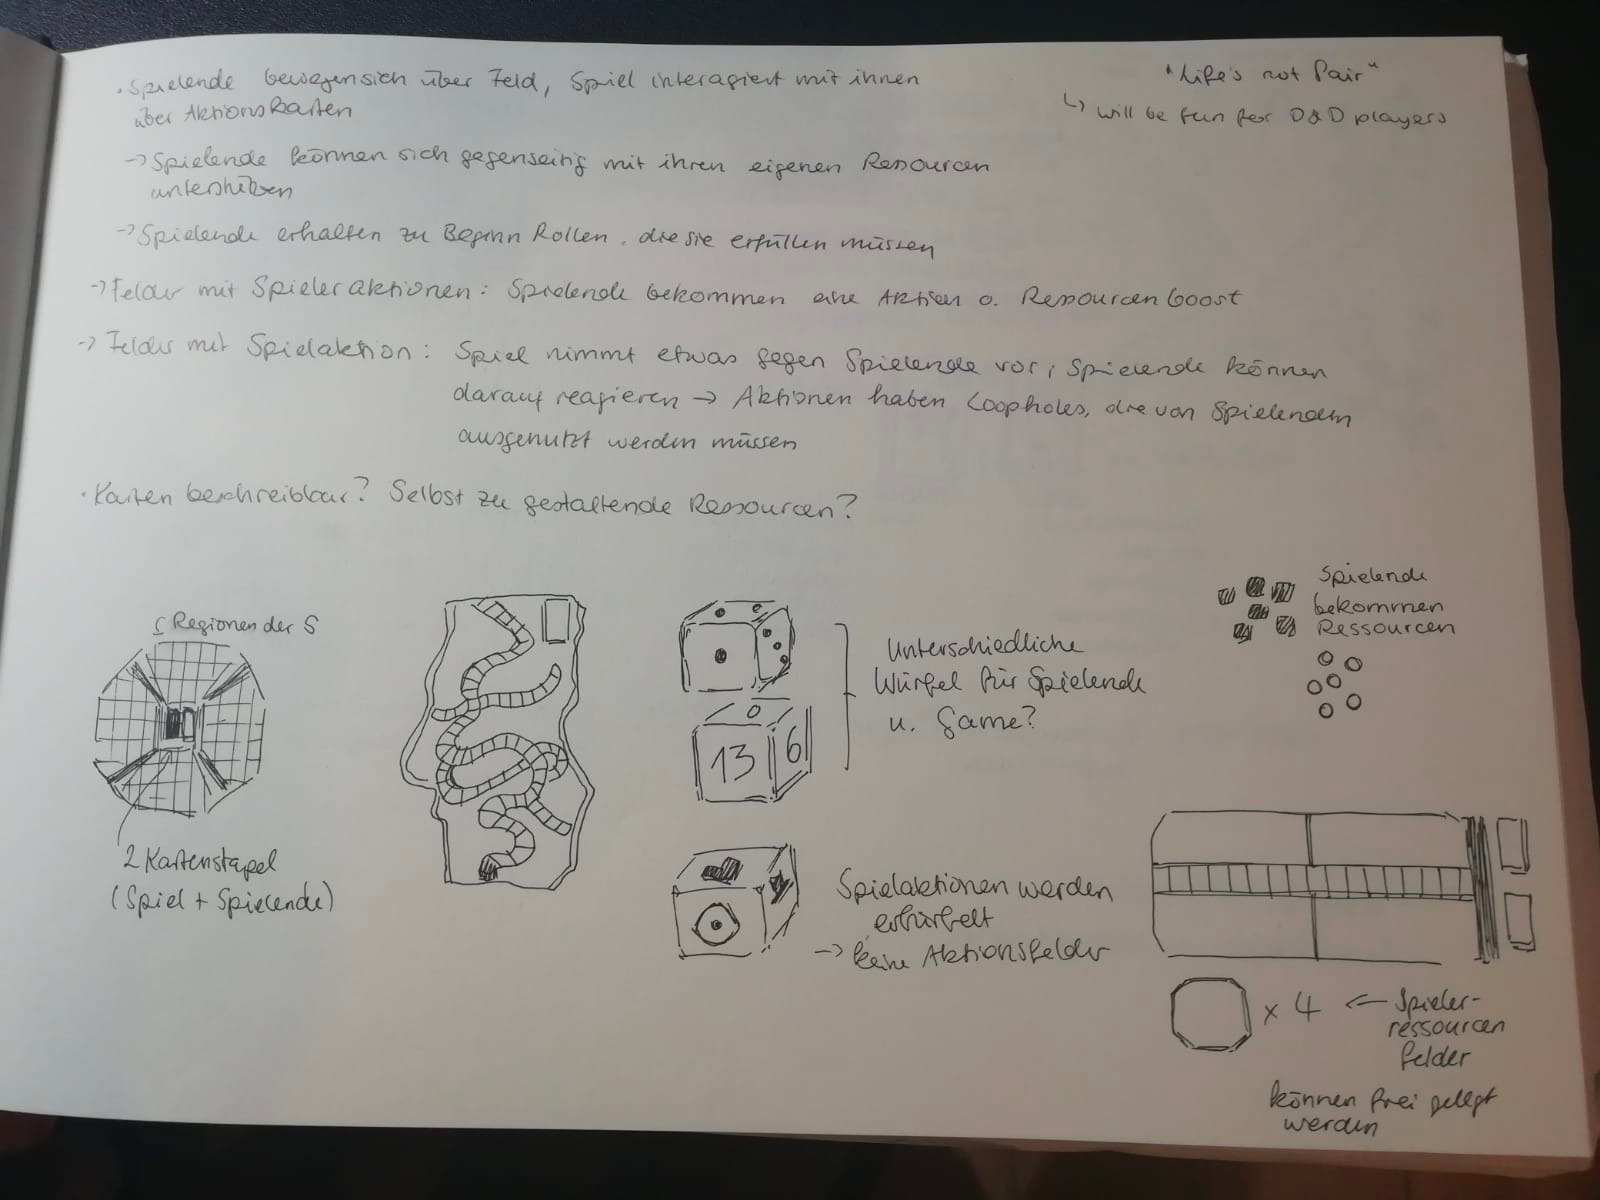 "Life's not fair"
↳ will be fun for D&D players
· Spielende bewegen sich über Feld, Spiel interagiert mit ihnen
über Aktionskarten
→ Spielende können sich gegenseitig mit ihren eigenen Ressourcen
unterstützen
→ Spielende erhalten zu Beginn Rollen, die sie erfüllen müssen
→ Felder mit Spieleraktionen: Spielende bekommen eine Aktion o. Ressourcenboost
→ Felder mit Spielaktion: Spiel nimmt etwas gegen Spielende vor, Spielende können
darauf reagieren → Aktionen haben Loopholes, die von Spielenden
ausgenutzt werden müssen
· Karten beschreibbar? Selbst zu gestaltende Ressourcen?
Regionen der S
2 Kartenstapel
(Spiel + Spielende)
13 6
Unterschiedliche
Würfel für Spielende
u. Game?
Spielaktionen werden
erwürfelt
→ keine Aktionsfelder
Spielende
bekommen
Ressourcen
x 4 ← Spieler-
ressourcen
felder
können frei gelegt
werden